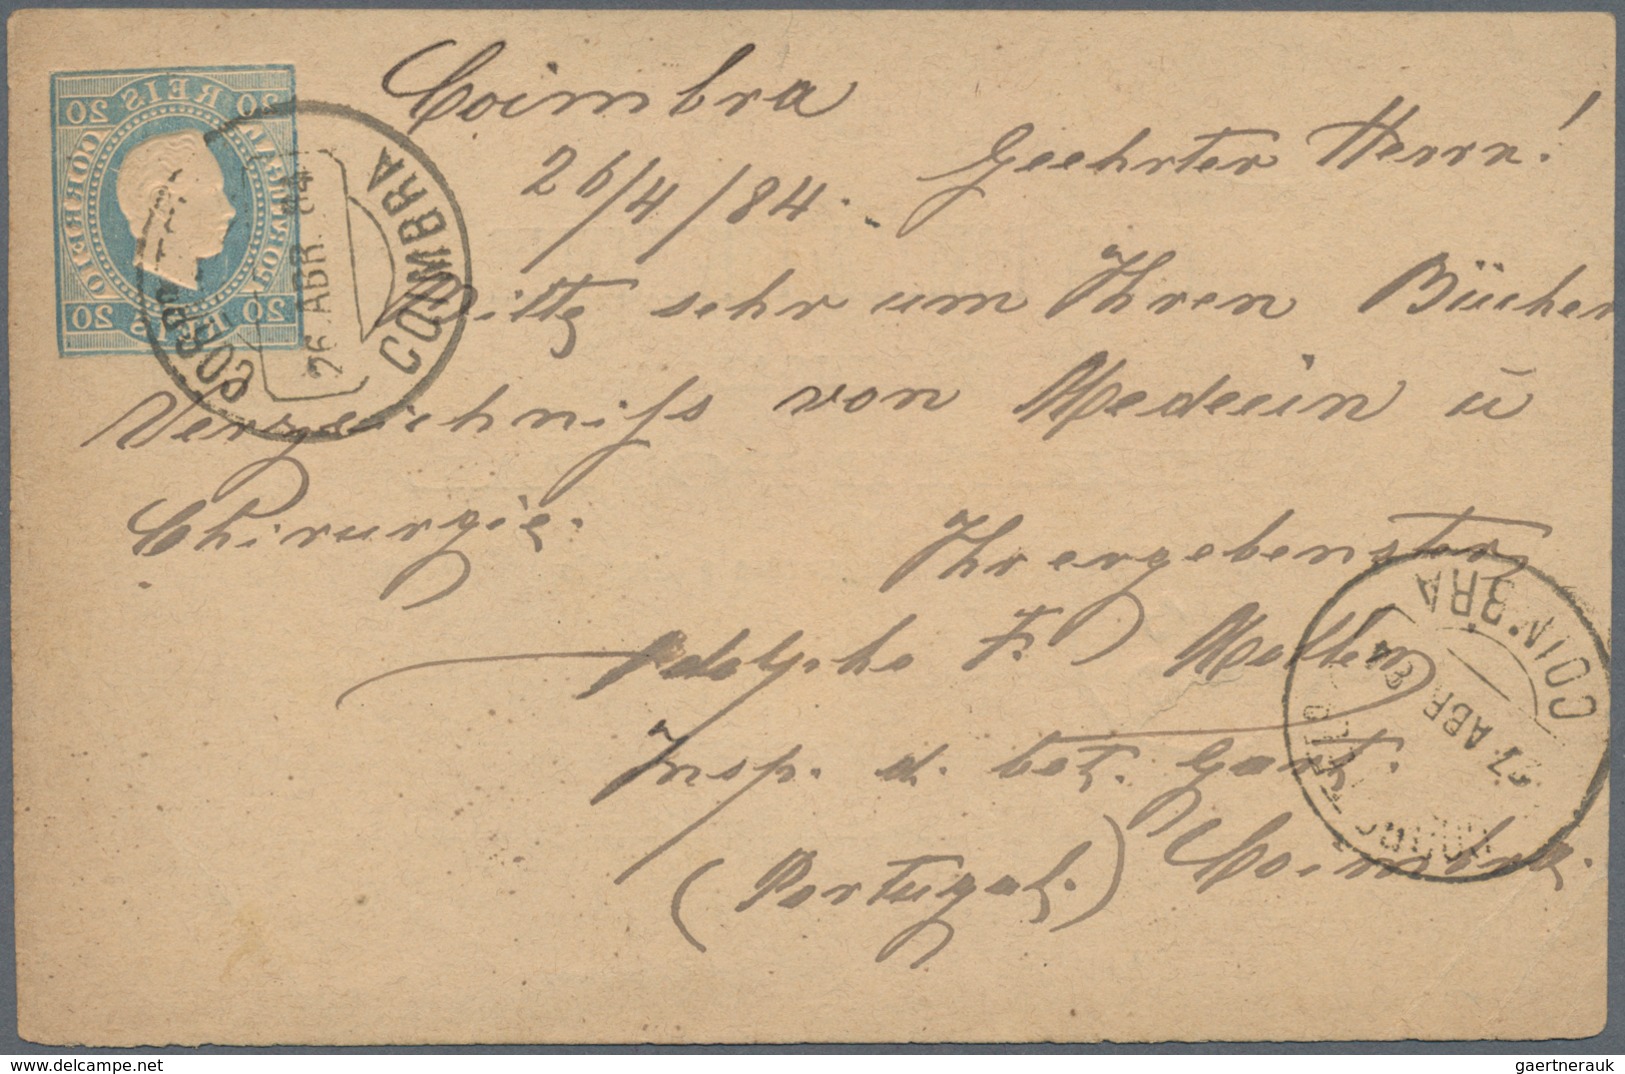 Coimbra
26/4/84.
Geehrter Herrn!
Bitte sehr um Ihren Bücher
Verzeichniss von Medecin ū
Chirurgie.
Ihr ergebenster
Adolpho F. Moller
Insp. d. bot. Gart.
Coimbra.
(Portugal.)
20 REIS 20
CORREIO
PORTUGAL
20 REIS 20
COIMBRA
26 ABR. 84
COIMBRA
27 ABR 84
gaertnerauk // delcampe.net